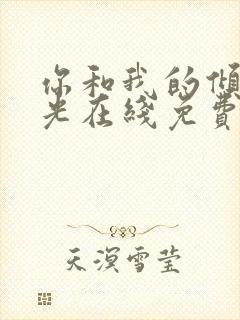 你和我的倾
光在线免费
天溟雪莹